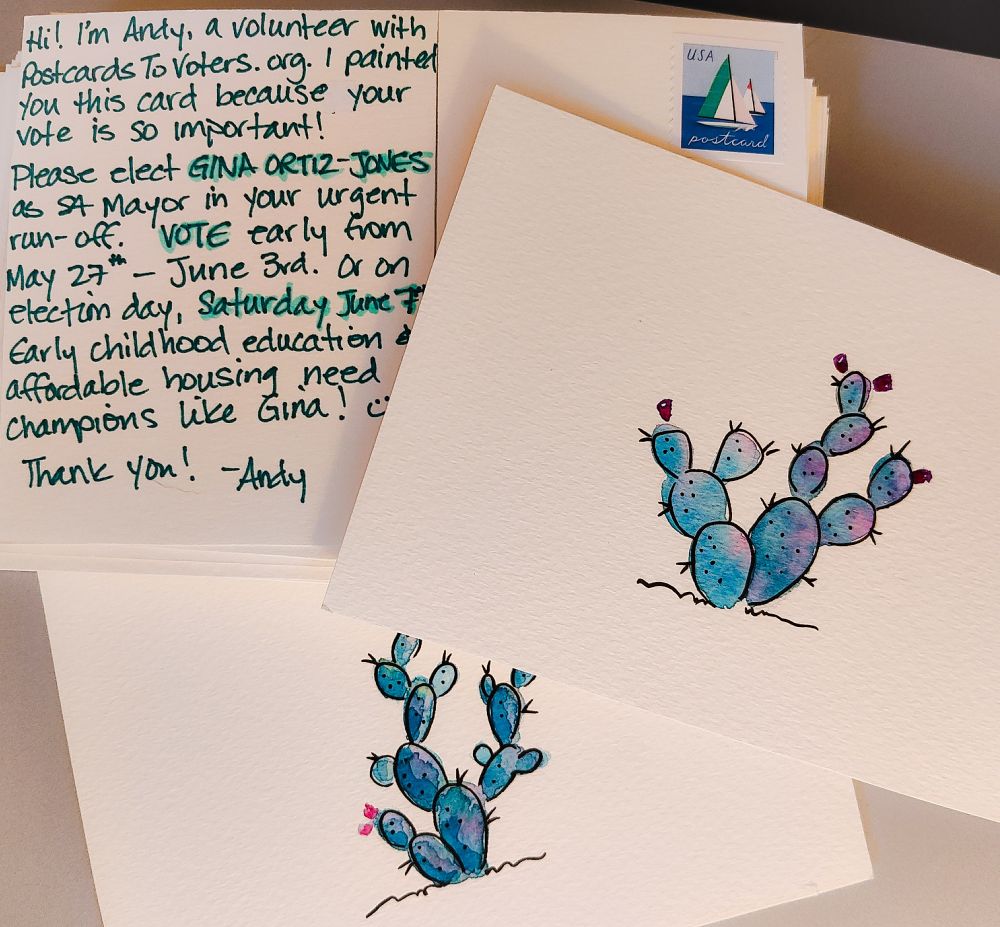 Hi! I'm Andy, a volunteer with
PostcardsToVoters.org. I painted
you this card because your
vote is so important!
Please elect GINA ORTIZ-JONES
as SA Mayor in your urgent
run-off. VOTE early from
May 27th – June 3rd. Or on
election day, Saturday June 7th
Early childhood education &
affordable housing need
champions like Gina! :)
Thank you! -Andy
USA
postcard